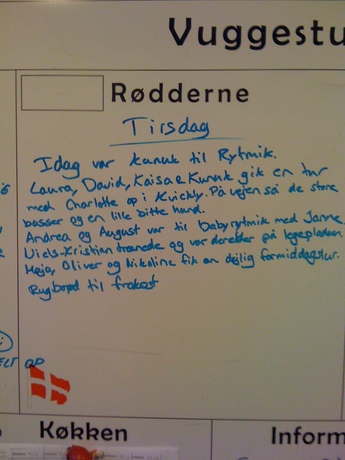 Vuggestu
Rødderne
Tirsdag
Idag var Kanuk til Rytmik.
Laura, David, Kaisa & Kunuk gik en tur
med Charlotte op i Kvickly. På vejen så de store
basser og en lille bitte hund.
Andrea og August var til Babyrytmik med Janne.
Niels-Kristian trænede og var derefter på legepladsen.
Maja, Oliver og Nikoline fik en dejlig formiddagslur.
Rugbrød til frokost
ELT OP
Køkken
Inform